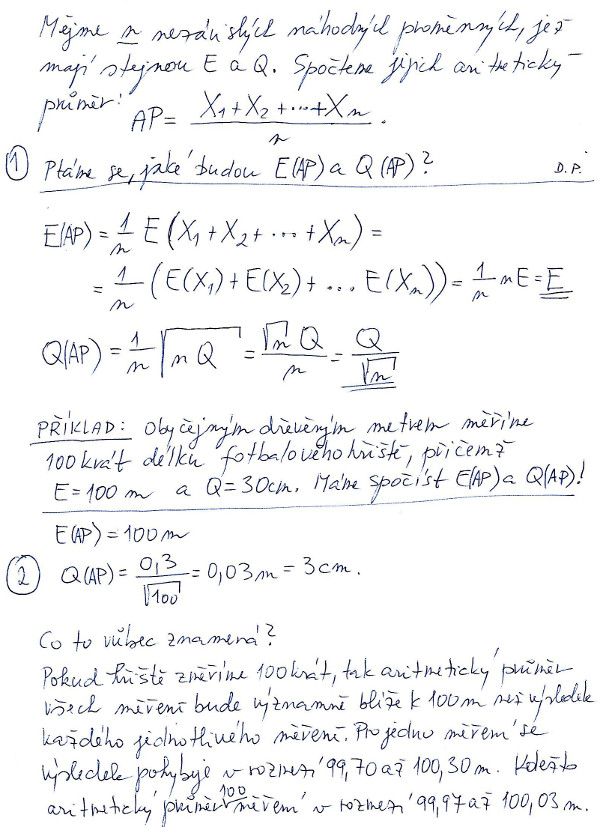 Mějme n nezávislých náhodných proměnných, jež
mají stejnou E a Q. Spočteme jejich aritmetický
průměr:
AP = (X₁ + X₂ + ... + Xₙ) / n .
① Ptáme se, jaké budou E(AP) a Q(AP)? D.P.
E(AP) = 1/n E (X₁ + X₂ + ... + Xₙ) =
= 1/n (E(X₁) + E(X₂) + ... E(Xₙ)) = 1/n nE = E
Q(AP) = 1/n √(n Q) = √n Q / n = Q / √n
PŘÍKLAD: Obyčejným dřevěným metrem měříme
100krát délku fotbalového hřiště, přičemž
E = 100 m a Q = 30cm. Máme spočíst E(AP) a Q(AP)!
E(AP) = 100 m
② Q(AP) = 0,3 / √100 = 0,03 m = 3 cm.
Co to vůbec znamená?
Pokud hřiště změříme 100krát, tak aritmetický průměr
všech měření bude významně blíže k 100m než výsledek
každého jednotlivého měření. Pro jedno měření se
výsledek pohybuje v rozmezí 99,70 až 100,30 m. Kdežto
aritmetický průměr 100 měření v rozmezí 99,97 až 100,03 m.